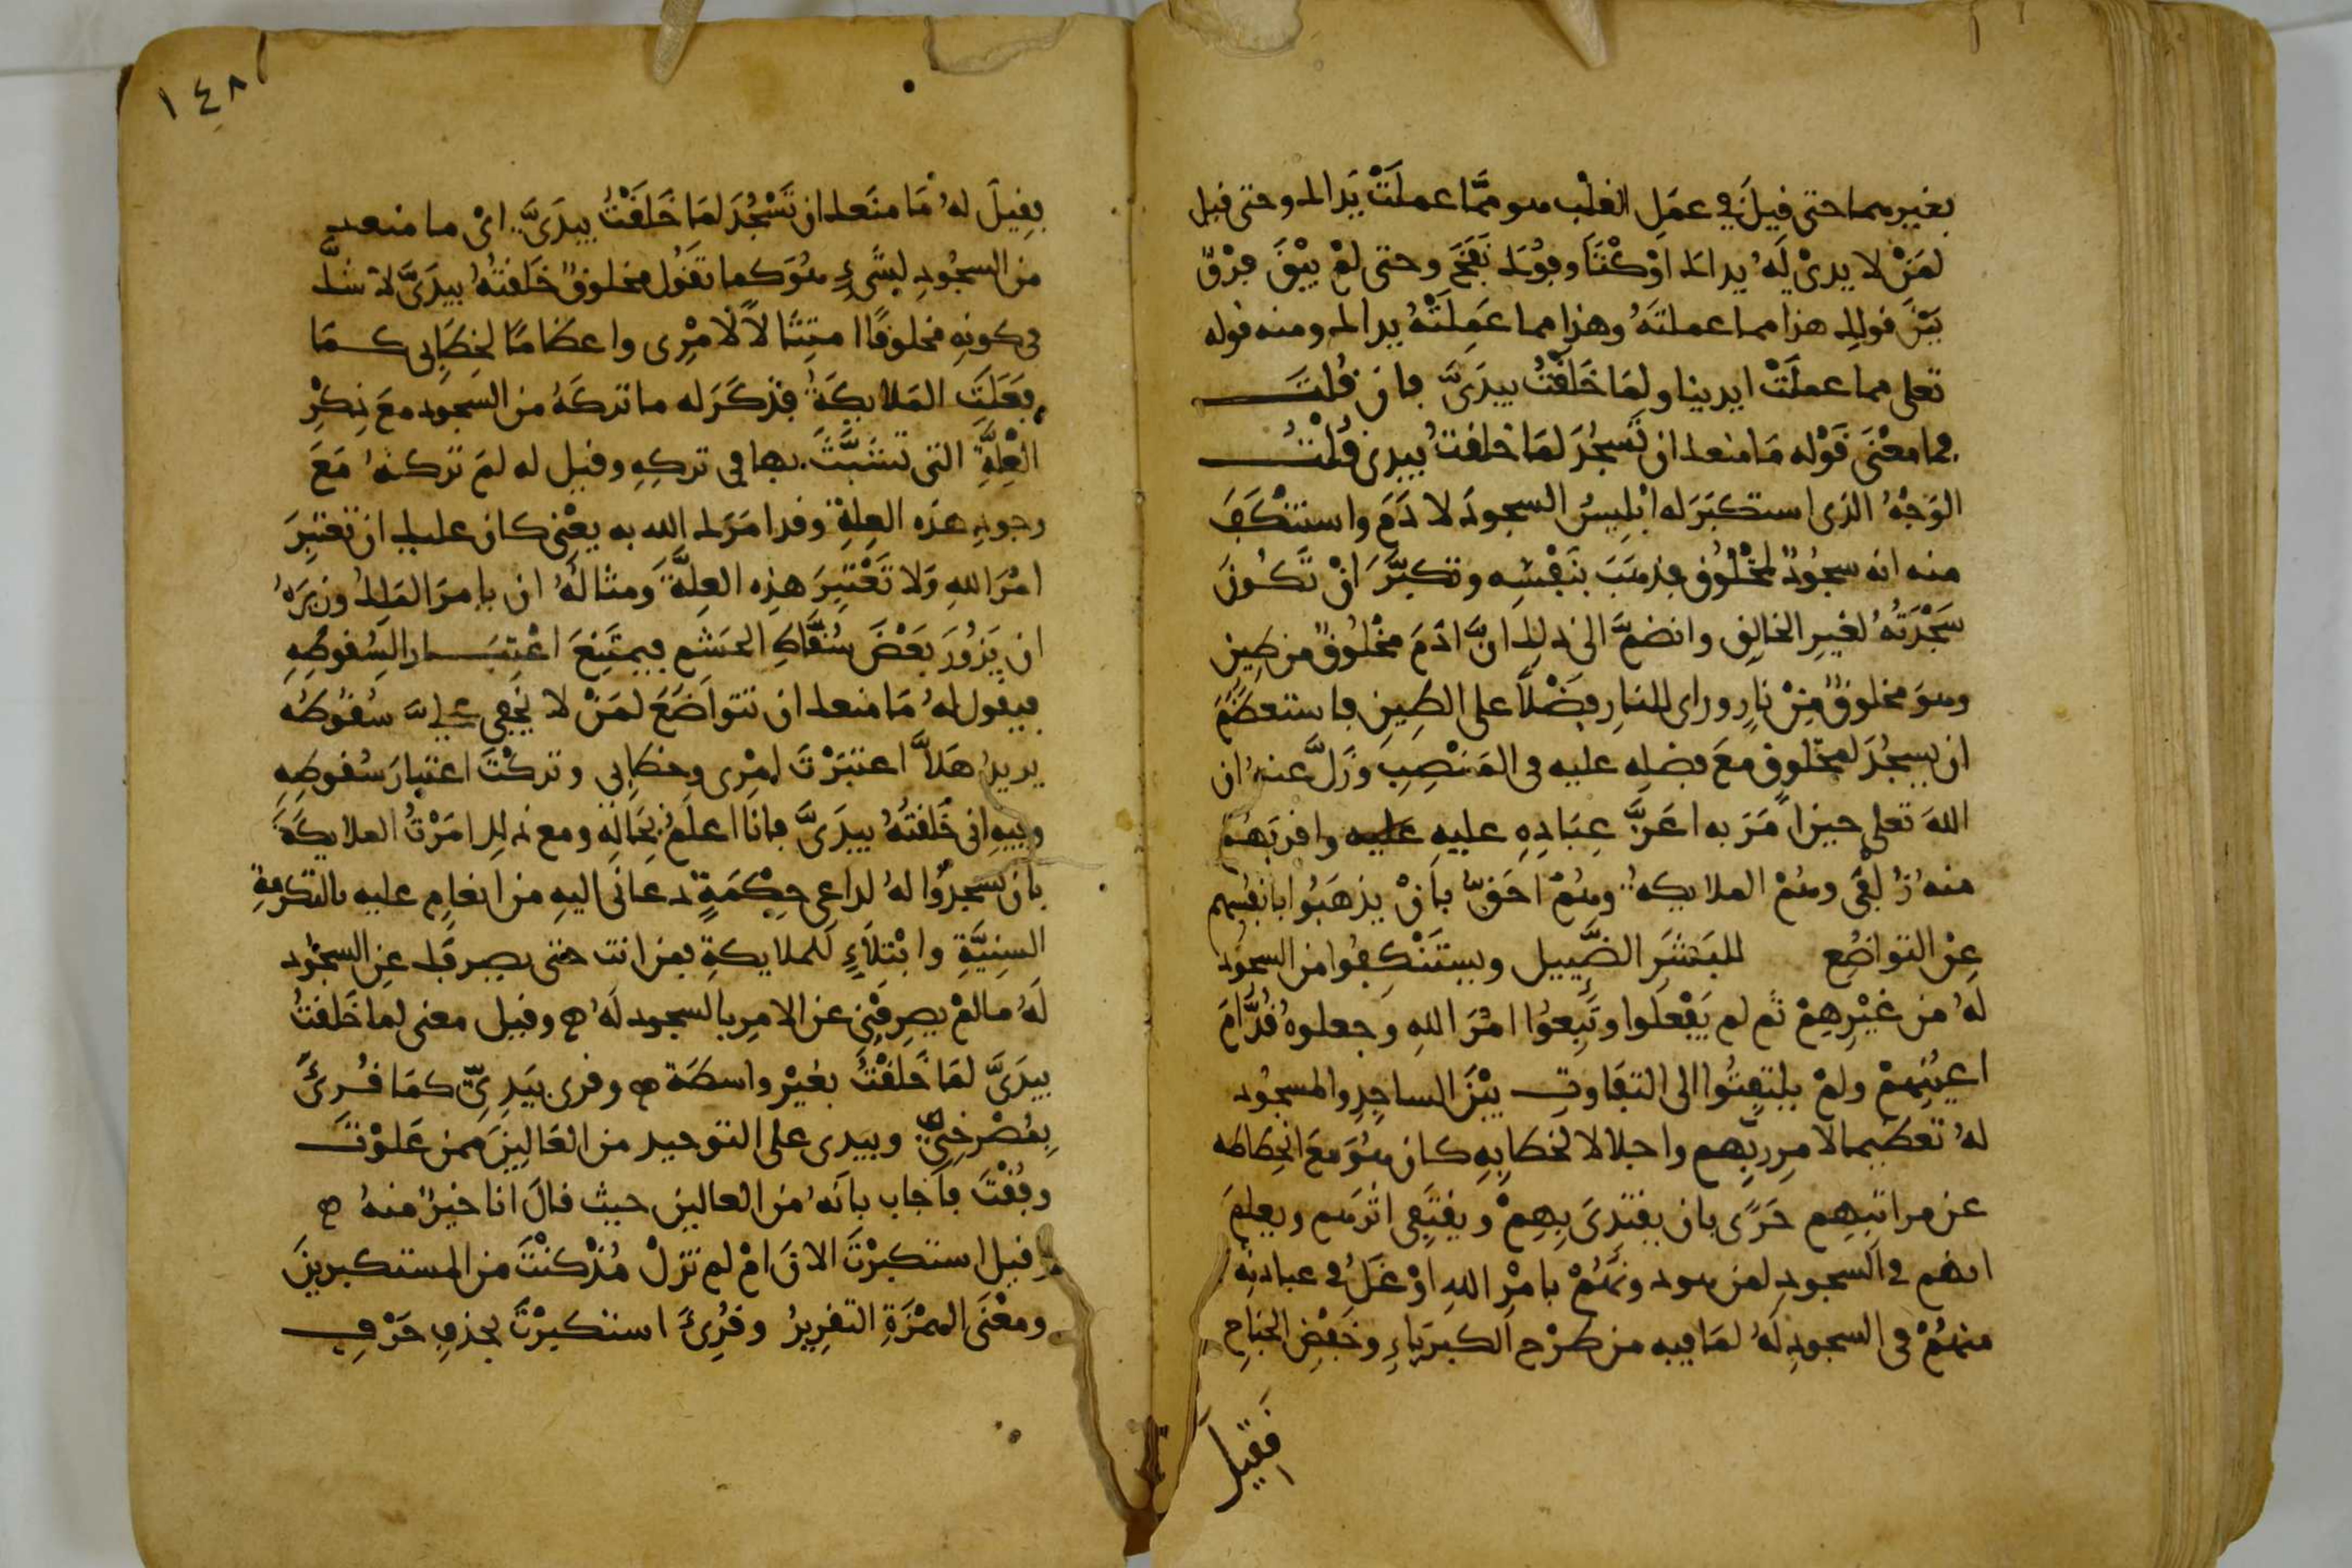 بغيرهما حتى قيل في عمل القلب هو مما عملت يداك وحتى قيل
لمن لا يدى له يداك اوكتا وفوك نفخ وحتى لم يبق فرق
بين قولك هذا مما عملته وهذا مما عملته يداك ومنه قوله
تعلى مما عملت ايدينا ولما خلقت بيدى فان قلت
فما معنى قوله ما منعك ان تسجد لما خلقت بيدى قلت
الوجه الذى استكبر له ابليس السجود لادم واستنكف
منه انه سجود لمخلوق فذهب بنفسه وتكبر ان تكون
سجدته لغير الخالق وانضم الى ذلك ان ادم مخلوق من طين
وهو مخلوق من نار وراى للنار فضلا على الطين فاستعظم
ان يسجد لمخلوق مع فضله عليه فى المنصب وزل عنه ان
الله تعلى حين امر به اعز عباده عليه عليه واقربهم
منه زلفى وهم الملايكة وهم احق بان يذهبوا بانفسهم
عن التواضع للبشر الضييل ويستنكفوا من السجود
له من غيرهم ثم لم يفعلوا وتبعوا امر الله وجعلوه قدام
اعينهم ولم يلتفتوا الى التفاوت بين الساجد والمسجود
له تعظيما لامر ربهم واجلالا لخطابه كان هو مع انحطاطه
عن مراتبهم حرى بان يقتدى بهم ويقتفى اثرهم ويعلم
انهم فى السجود لمن هو دونهم بامر الله اوغل فى عبادته
منهم فى السجود له لما فيه من طرح الكبرياء وخفض الجناح
فقيل
١٤٨
فقيل له ما منعك ان تسجد لما خلقت بيدى اى ما منعك
من السجود لشىء هو كما تقول مخلوق خلقته بيدى لا شك
فى كونه مخلوقا امتثالا لامرى واعظاما لخطابى كما
فعلت الملايكة فذكر له ما تركه من السجود مع ذكر
العلة التى تشبث بها فى تركه وقيل له لم تركته مع
وجود هذه العلة وقد امرك الله به يعنى كان عليك ان تعتبر
امر الله ولا تعتبر هذه العلة ومثاله ان يامر الملك وزيره
ان يزور بعض سقاط الحشم فيمتنع اعتبارا لسقوطه
فيقول له ما منعك ان تتواضع لمن لا يخفى على سقوطه
يريد هلا اعتبرت امرى وخطابى وتركت اعتبار سقوطه
وفيه انى خلقته بيدى فانا اعلم بحاله ومع ذلك امرت الملايكة
بان يسجدوا له لداعى حكمة دعانى اليه من انعام عليه بالتكرمة
السنية وابتلاء للملايكة فمن انت حتى يصرفك عن السجود
له ما لم يصرفنى عن الامر بالسجود له وقيل معنى لما خلقت
بيدى لما خلقت بغير واسطة وقرى بيدى كما قرئ
بمصرخى وبيدى على التوحيد من العالين ممن علوت
وفقت فاجاب بانه من العالين حيث قال انا خير منه
وقيل استكبرت الان ام لم تزل مذ كنت من المستكبرين
ومعنى الهمزة التقرير وقرئ استكبرت بحذف حرف